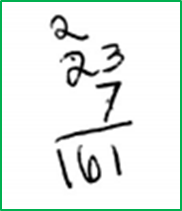 2
23
7
161